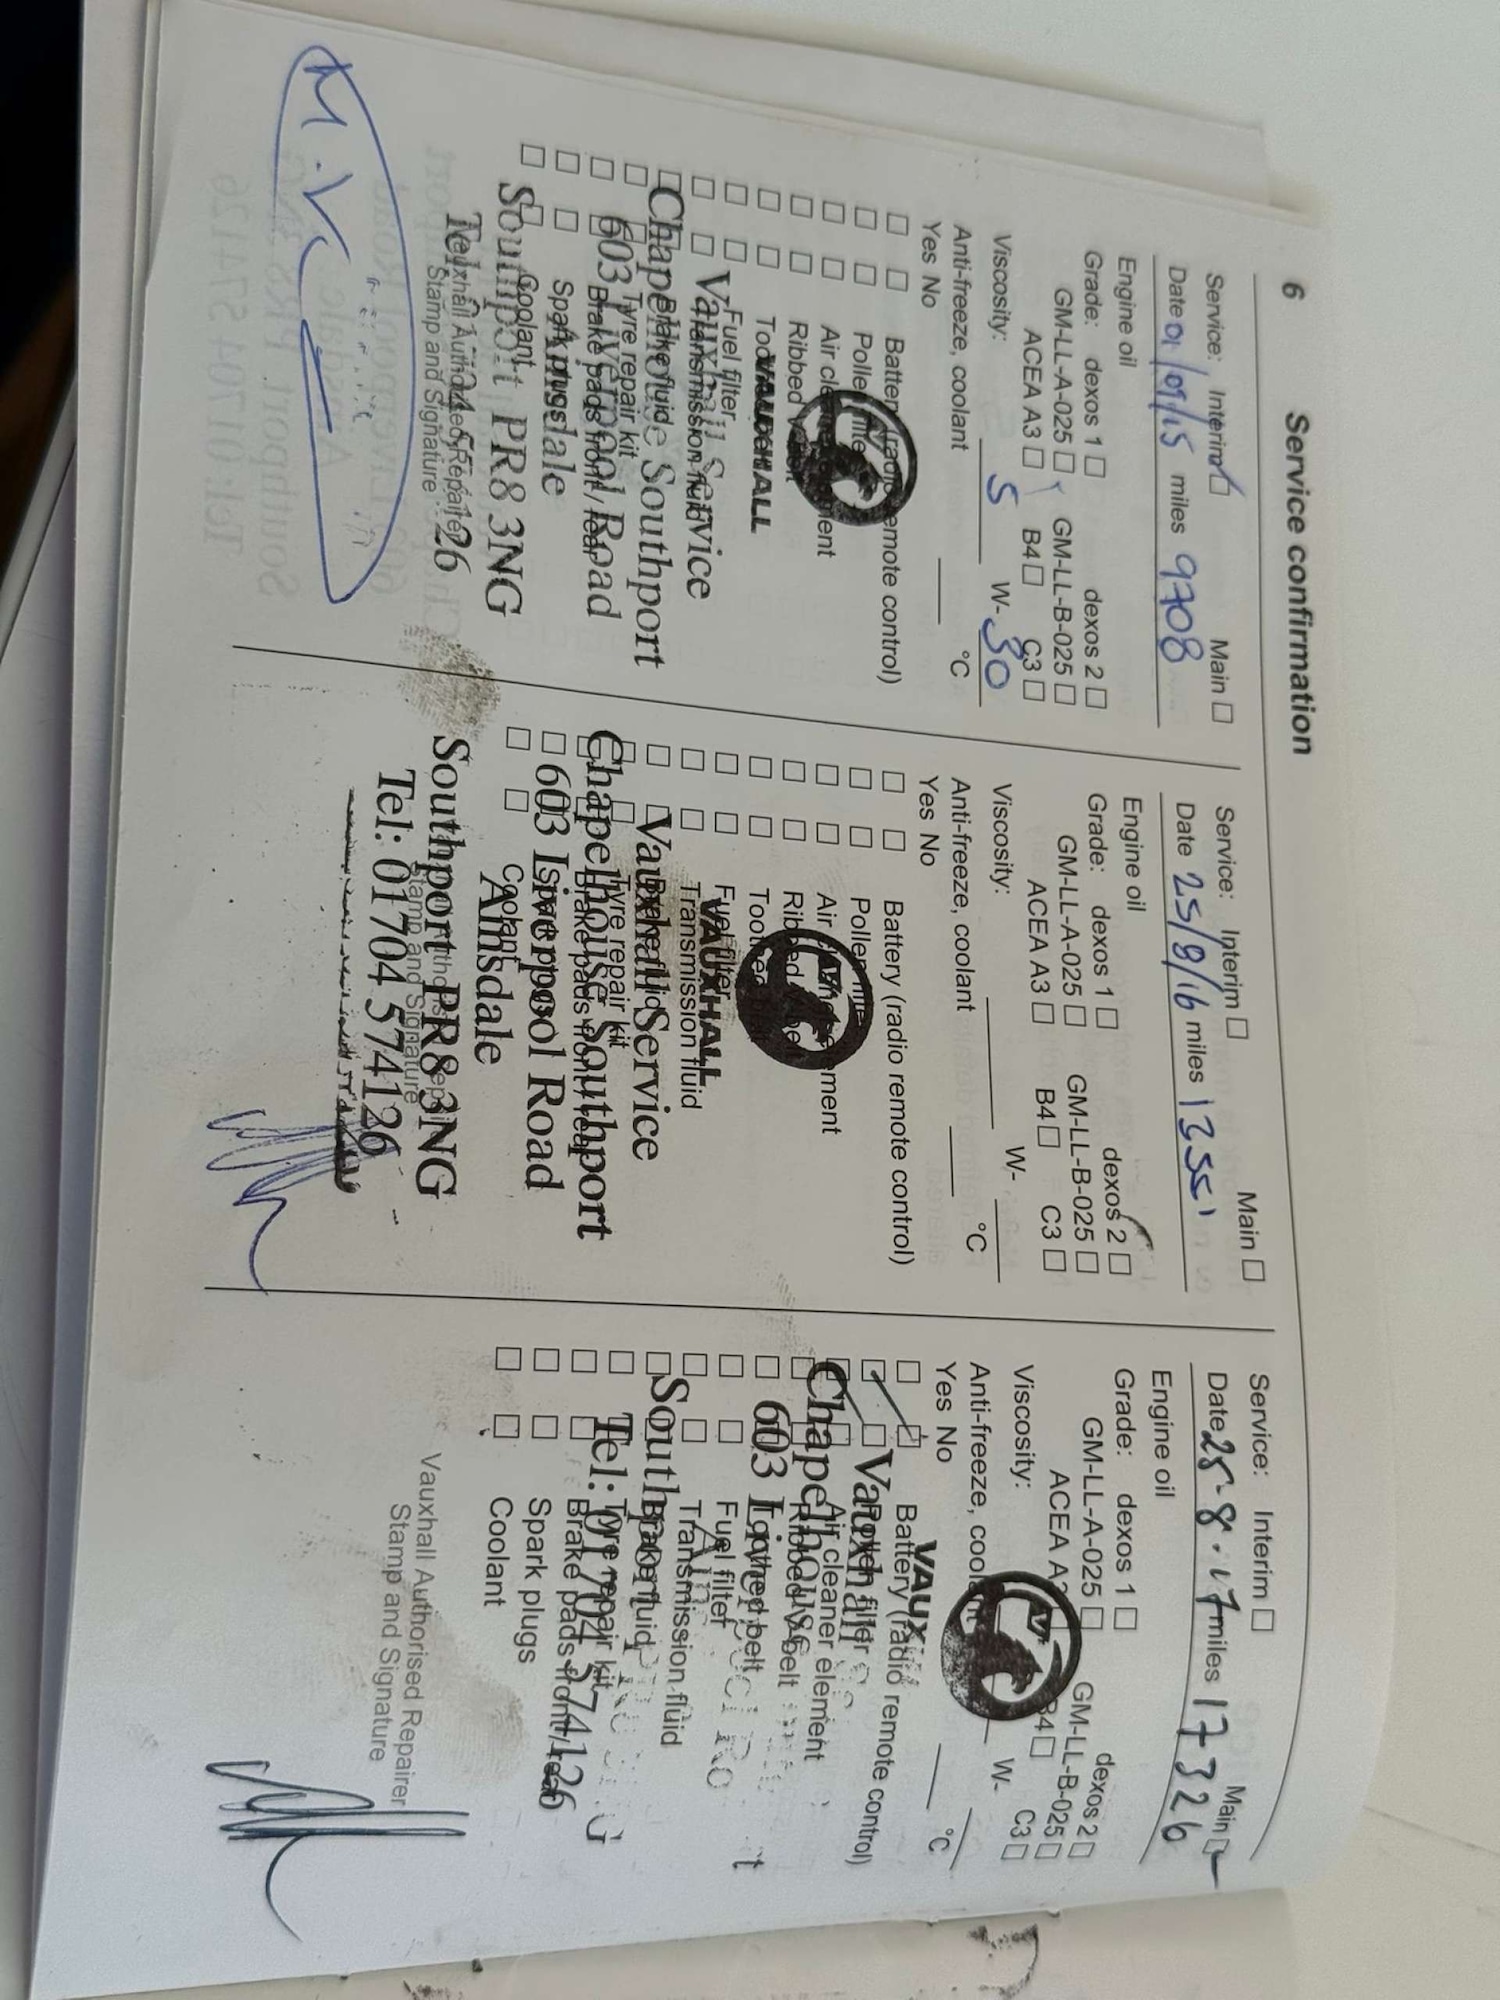 6 Service confirmation
Service: Interim Main
Date 01/09/15 miles 9708
Engine oil
Grade: dexos 1 dexos 2
GM-LL-A-025 GM-LL-B-025
ACEA A3 B4 C3
Viscosity: 5 W-30
Anti-freeze, coolant °C
Yes No
Battery (radio remote control)
Fuel filter
Transmission fluid
Brake fluid
Tyre repair kit
Brake pads front / rear
Spark plugs
Coolant
VAUXHALL
Vauxhall Service
Chapelhouse Southport
603 Liverpool Road
Ainsdale
Southport PR8 3NG
Vauxhall Authorised Repairer
Stamp and Signature
Service: Interim Main
Date 25/8/16 miles 13551
Engine oil
Grade: dexos 1 dexos 2
GM-LL-A-025 GM-LL-B-025
ACEA A3 B4 C3
Viscosity: W-
Anti-freeze, coolant °C
Yes No
Battery (radio remote control)
Fuel filter
Transmission fluid
Tyre repair kit
Coolant
VAUXHALL
Vauxhall Service
Chapelhouse Southport
603 Liverpool Road
Ainsdale
Southport PR8 3NG
Tel: 01704 574126
Stamp and Signature
Service: Interim Main
Date 25-8-17 miles 17326
Engine oil
Grade: dexos 1 dexos 2
GM-LL-A-025 GM-LL-B-025
ACEA B4 C3
Viscosity: W-
Anti-freeze, coolant °C
Yes No
Battery (radio remote control)
Pollen filter
Air cleaner element
Ribbed V-belt
Toothed belt
Fuel filter
Transmission fluid
Brake fluid
Tyre repair kit
Brake pads front / rear
Spark plugs
Coolant
Vauxhall
Chapelhouse
603
Tel: 01704 574126
Vauxhall Authorised Repairer
Stamp and Signature